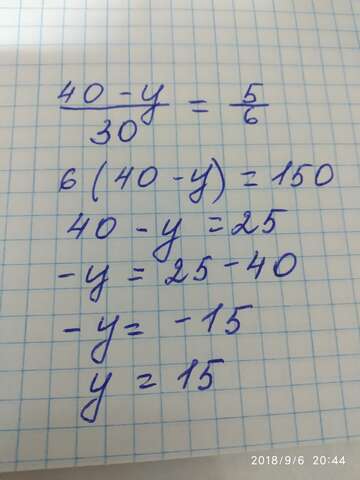 40 - y / 30 = 5 / 6
6 (40 - y) = 150
40 - y = 25
-y = 25 - 40
-y = -15
y = 15
2018/9/6 20:44